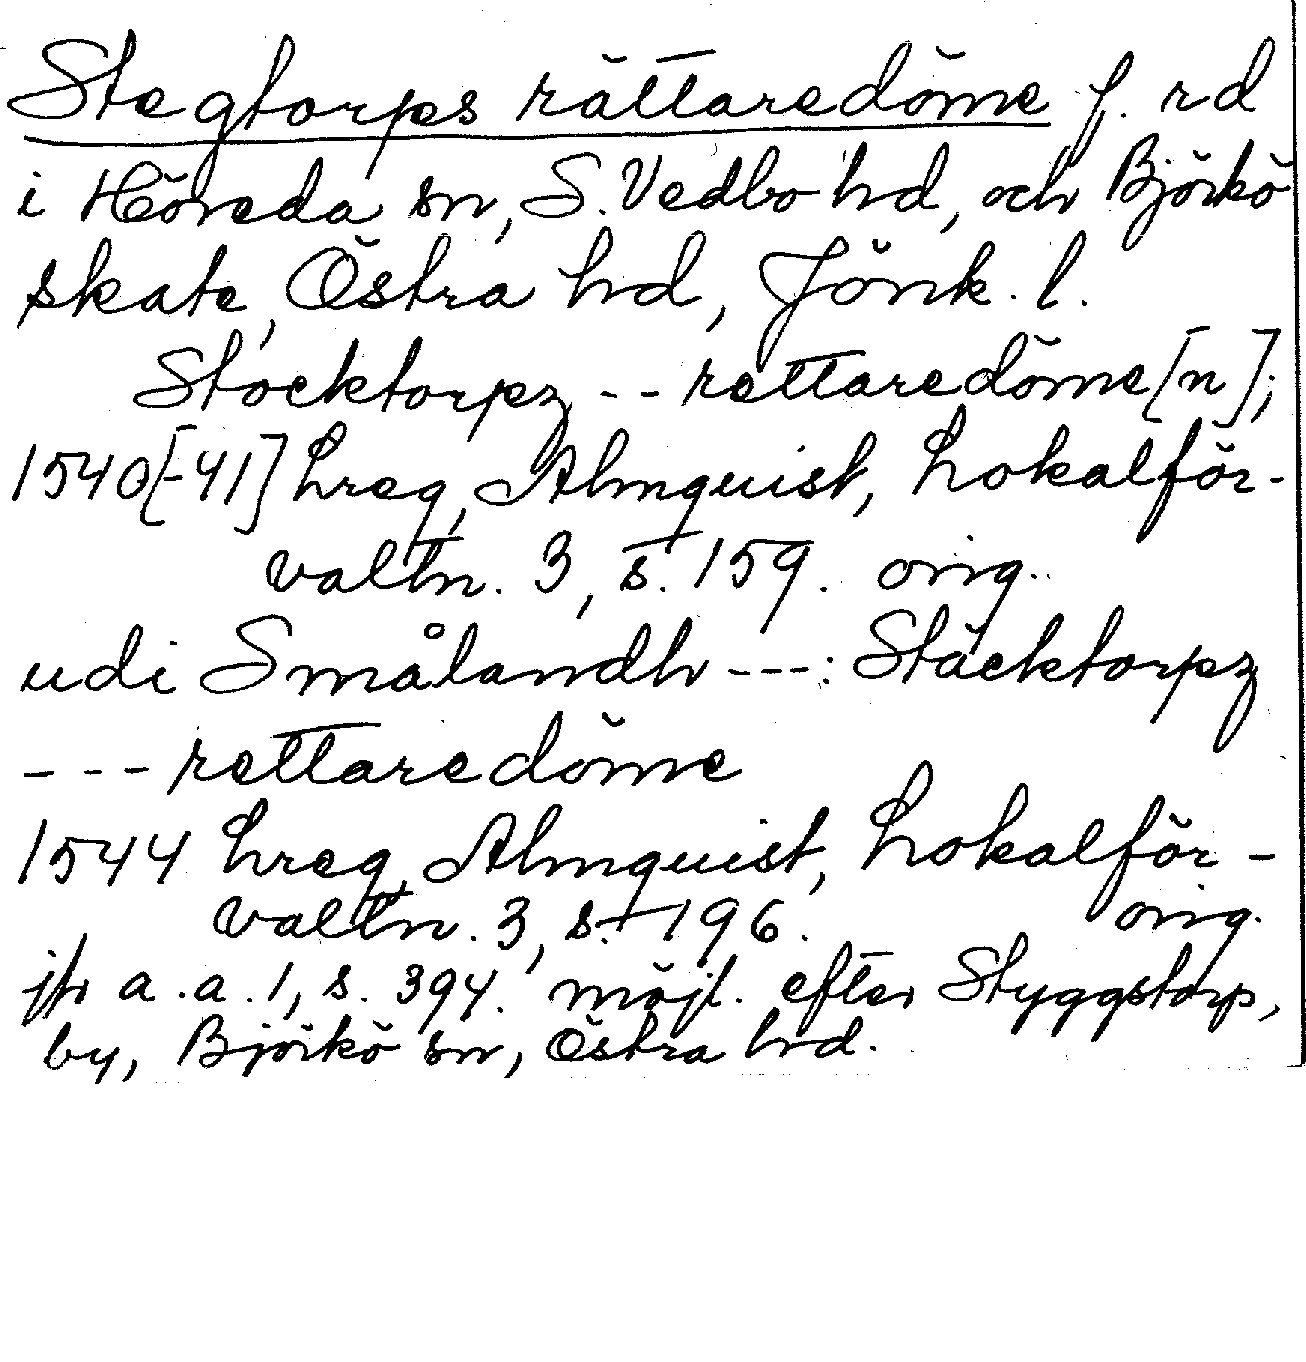 Stegtorps rättaredöme f. rd
i Höreda sn, S. Vedbo hd, och Björkö
skate, Östra hd, Jönk. l.
Stocktorpz -- rettaredöme[n];
1540[-41] Lreg, Almquist, Lokalför-
valtn. 3, s. 159. orig.
udi Smålandh ---: Stäcktorpz
--- rettaredöme
1544 Lreg, Almquist, Lokalför-
valtn. 3, s. 196. orig.
jfr a.a. 1, s. 394. möjl. efter Styggstorp,
by, Björkö sn, Östra hd.